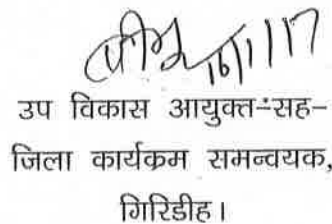 16/1/17
उप विकास आयुक्त-सह-
जिला कार्यक्रम समन्वयक,
गिरिडीह।